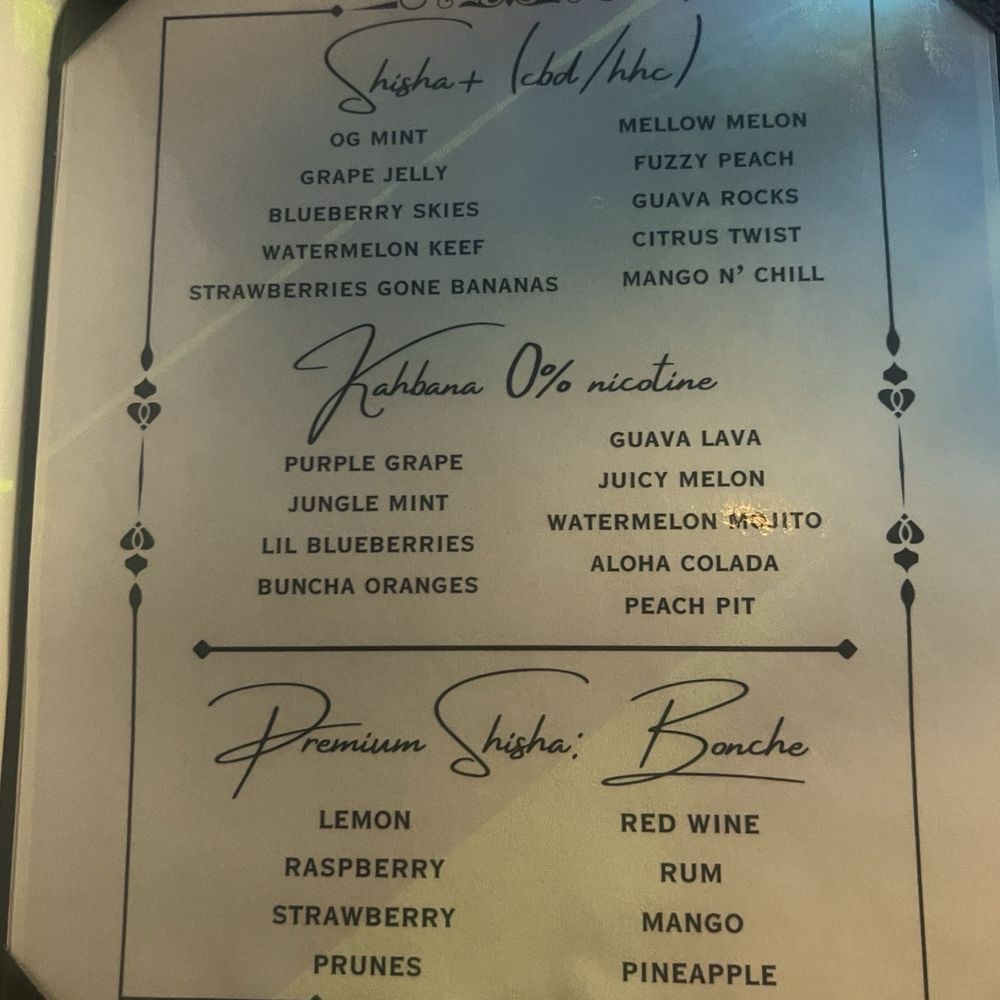 Shisha+ (cbd/hhc)
OG MINT
GRAPE JELLY
BLUEBERRY SKIES
WATERMELON KEEF
STRAWBERRIES GONE BANANAS
MELLOW MELON
FUZZY PEACH
GUAVA ROCKS
CITRUS TWIST
MANGO N' CHILL
Kahbana 0% nicotine
PURPLE GRAPE
JUNGLE MINT
LIL BLUEBERRIES
BUNCHA ORANGES
GUAVA LAVA
JUICY MELON
WATERMELON MOJITO
ALOHA COLADA
PEACH PIT
Premium Shisha: Bonche
LEMON
RASPBERRY
STRAWBERRY
PRUNES
RED WINE
RUM
MANGO
PINEAPPLE